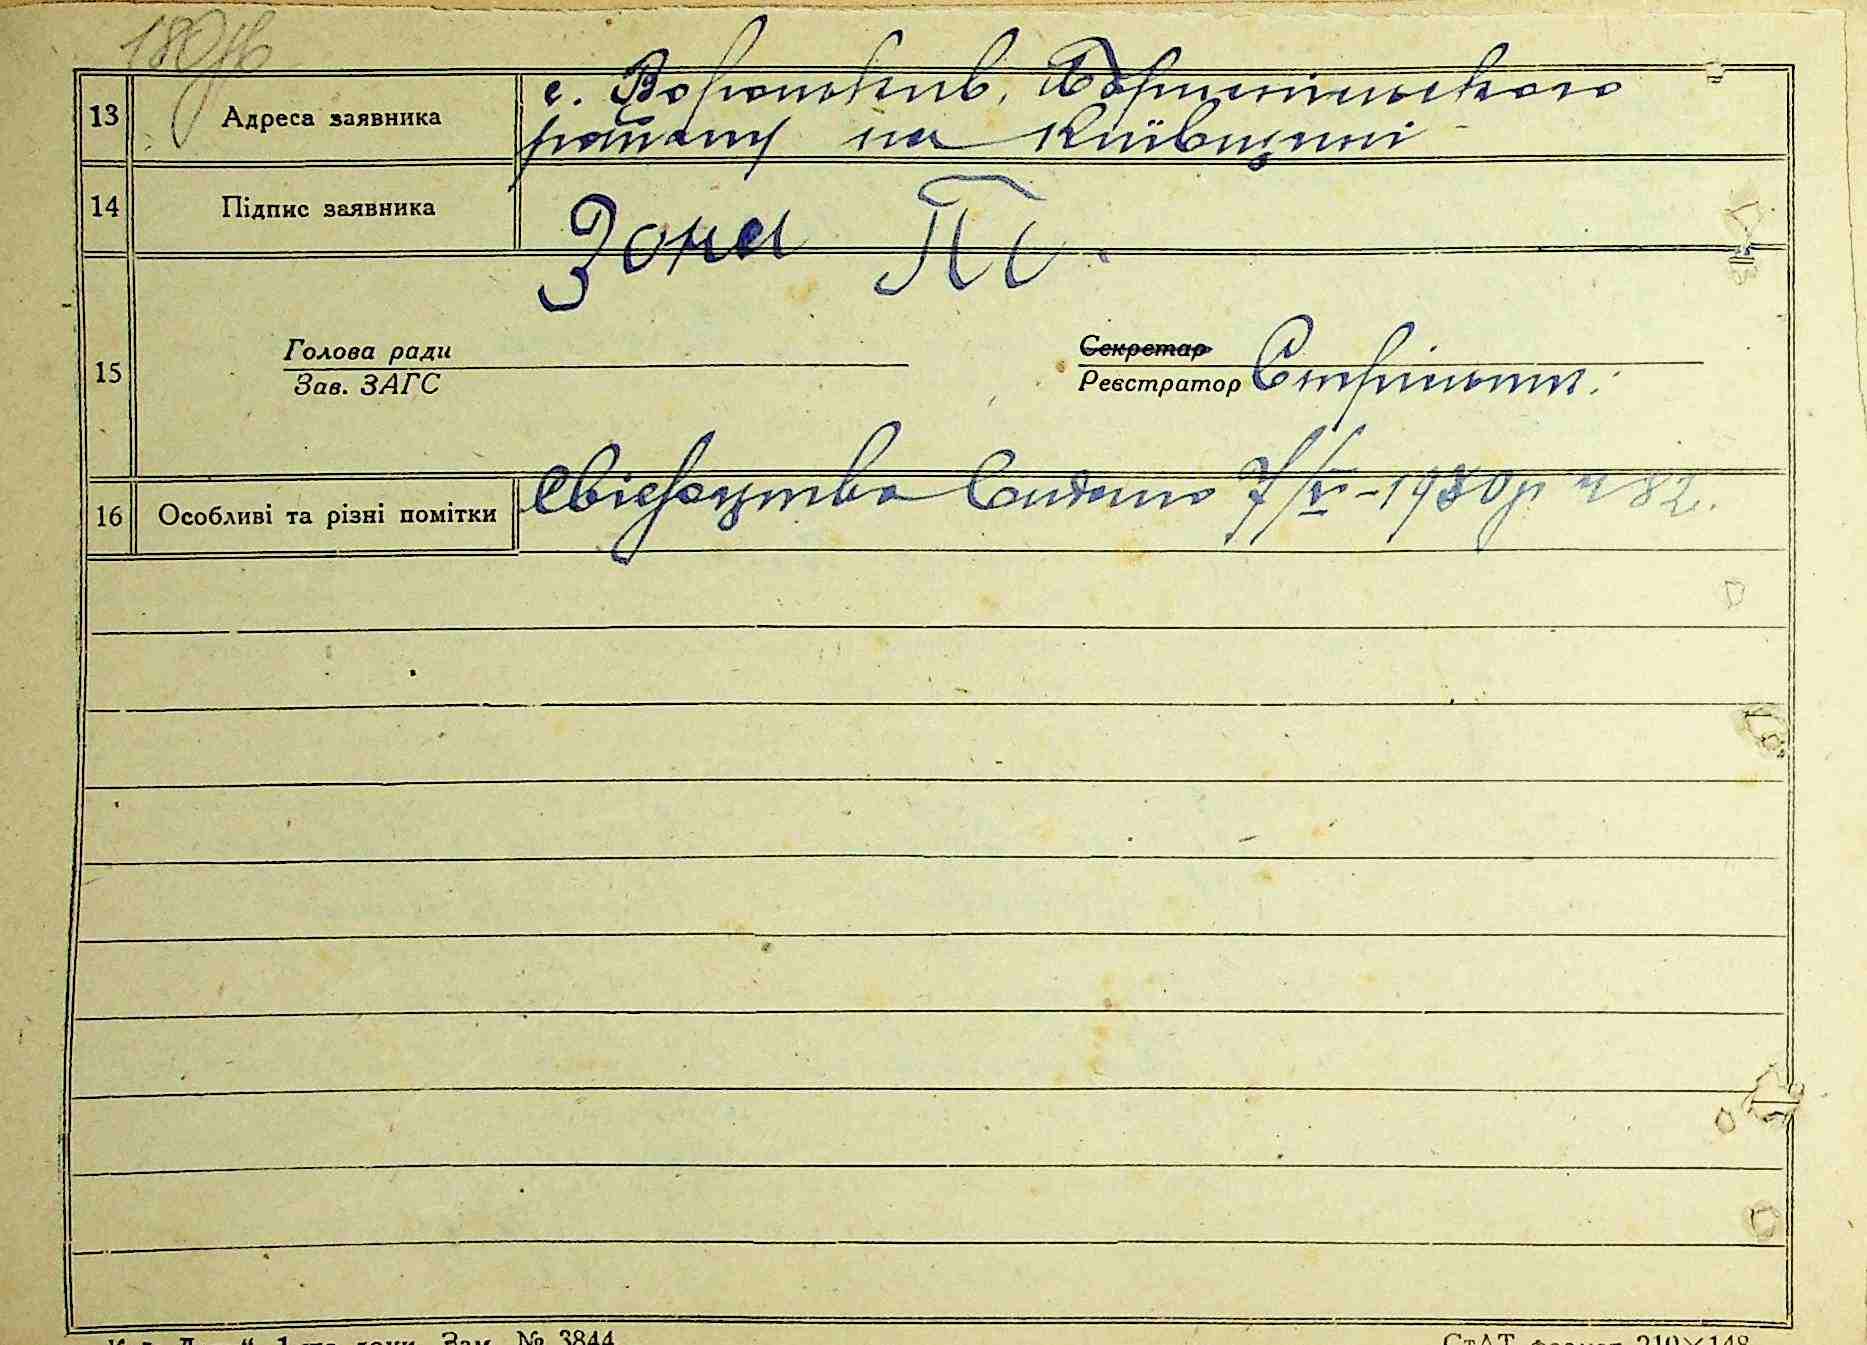 180 зв
13 Адреса заявника с. Вороньків, Бориспільського
району на Київщині
14 Підпис заявника Зона П.
15 Голова ради Секретар
Зав. ЗАГС Реєстратор
16 Особливі та різні помітки Свідоцтво видано 7/V-1930р ч 82.
Зам. № 3844
СтАТ формат 210×148